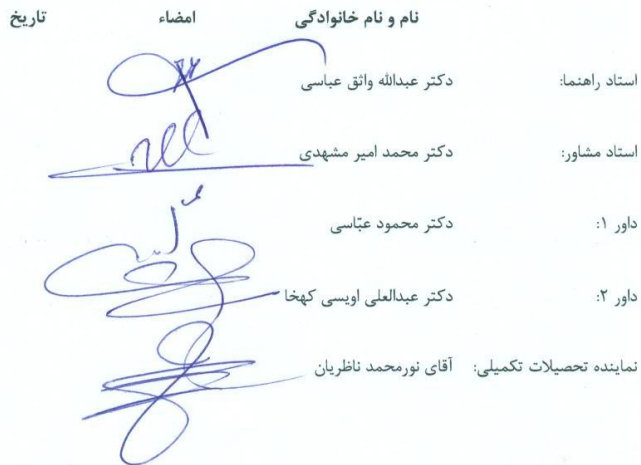 نام و نام خانوادگی امضاء تاریخ
استاد راهنما: دکتر عبدالله واثق عباسی
استاد مشاور: دکتر محمد امیر مشهدی
داور ۱: دکتر محمود عبّاسی
داور ۲: دکتر عبدالعلی اویسی کهخا
نماینده تحصیلات تکمیلی: آقای نورمحمد ناظریان